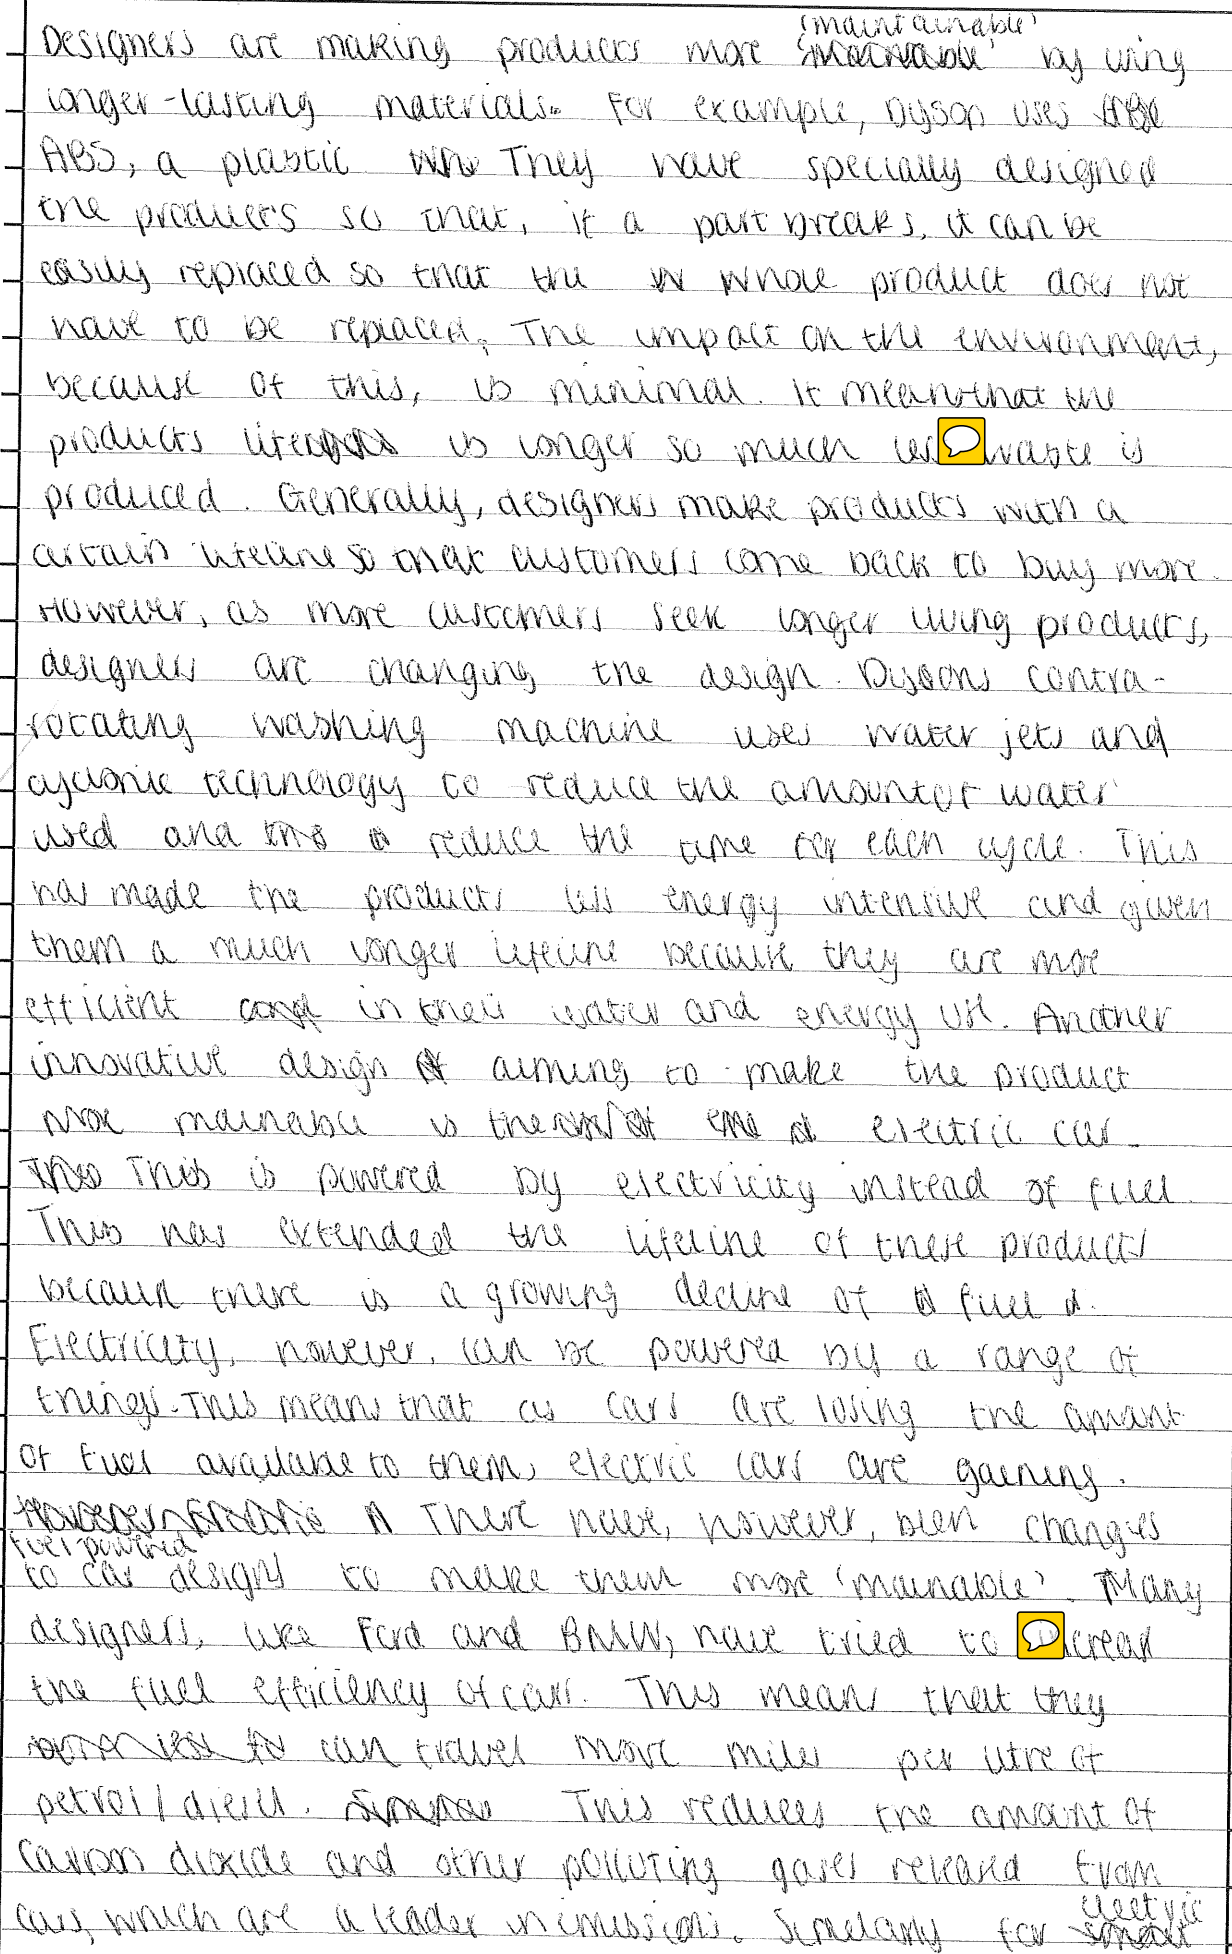 (maintainable)
Designers are making products more by using
longer-lasting materials. For example, Dyson uses
ABS, a plastic They have specially designed
the products so that, if a part breaks, it can be
easily replaced so that the whole product does not
have to be replaced. The impact on the environment,
because of this, is minimal. It means that the
products life is longer so much less waste is
produced. Generally, designers make products with a
certain lifeline so that customers come back to buy more.
However, as more customers seek longer living products,
designers are changing the design. Dysons contra-
rotating washing machine uses water jets and
cyclonic technology to reduce the amount of water
used and reduce the time for each cycle. This
has made the products less energy intensive and given
them a much longer lifeline because they are more
efficient in their water and energy use. Another
innovative design aiming to make the product
more mainable is the electric car.
This is powered by electricity instead of fuel.
This has extended the lifeline of these products
because there is a growing decline of fuel.
Electricity, however, can be powered by a range of
things. This means that as cars are losing the amant
of fuel available to them, electric cars are gaining.
There have, however, been changes
fuel powered
to car designs to make them more 'mainable'. Many
designers, like Ford and BMW, have tried to increase
the fuel efficiency of cars. This means that they
can travel more miles per litre of
petrol/diesel. This reduces the amount of
carbon dioxide and other polluting gases released from
cars, which are a leader in emissions. Similarly for
electric